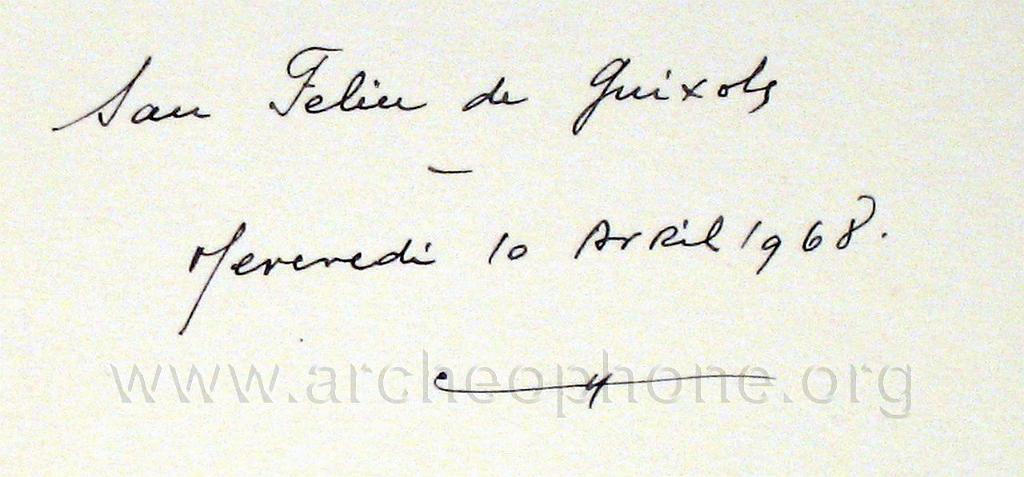 San Feliu de Guixols
–
Mercredi 10 Avril 1968.
www.archeophone.org